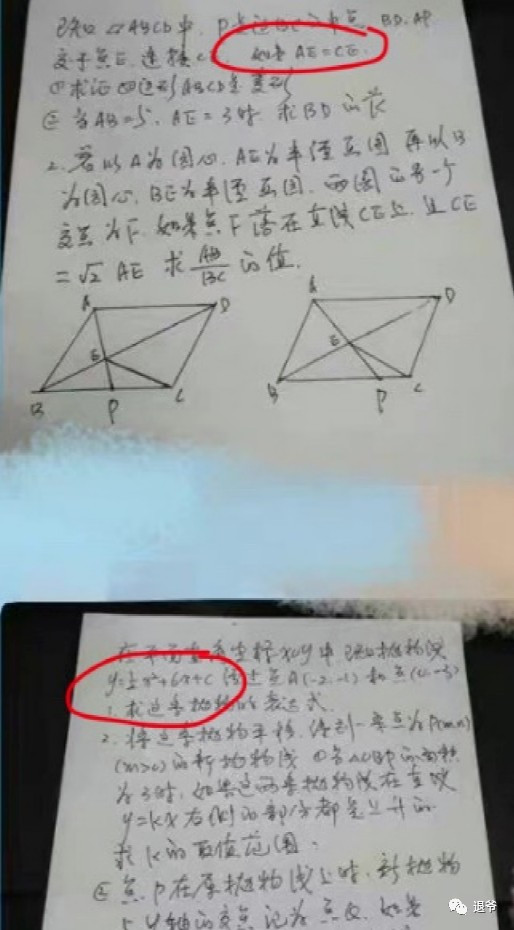 已知 ▱ABCD中, P是边BC的中点, BD、AP
交于点E, 连接C 如果 AE=CE.
①求证 四边形ABCD是菱形
② 当AB=5, AE=3时 求BD的长
2. 若以A为圆心, AE为半径画圆 再以B
为圆心, BE为半径画圆, 两圆的另一个
交点为F. 如果点F落在直线CE上, 且CE
=√2 AE 求 AB/BC 的值.
A
D
E
B
P
C
A
D
E
B
P
C
在平面直角坐标xoy中 已知抛物线
经过点A(-2,-1) 和点
1. 求这条抛物的表达式
2. 将这条抛物平移, 得到一顶点为P(m,n)
(m>0)的新抛物线 的面积
为3时, 如果这两条抛物线在直线
y=kx 右侧的部分都是上升的
求k的取值范围.
② 点P在原抛物线上时, 新抛物
与y轴的交点记为点Q, 如果
退爷